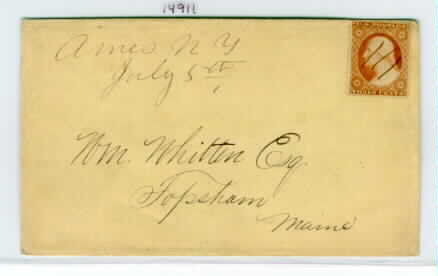 14911
Ames N Y
July 5th
U.S. POSTAGE
THREE CENTS
Wm. Whitten Esq.
Topsham
Maine